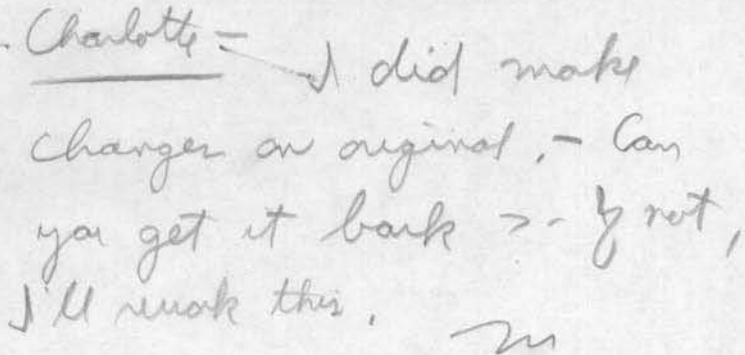 Charlotte - I did make
changes on original, - Can
you get it back ? - If not,
I'll rework this.
m